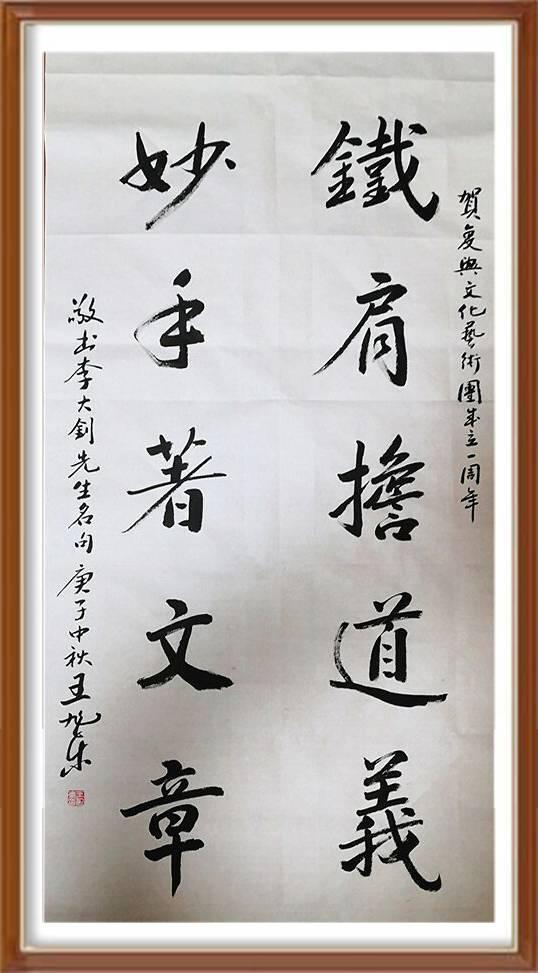 賀复興文化藝術團成立一周年
鐵肩擔道義
妙手著文章
敬书李大釗先生名句 庚子中秋 王旭